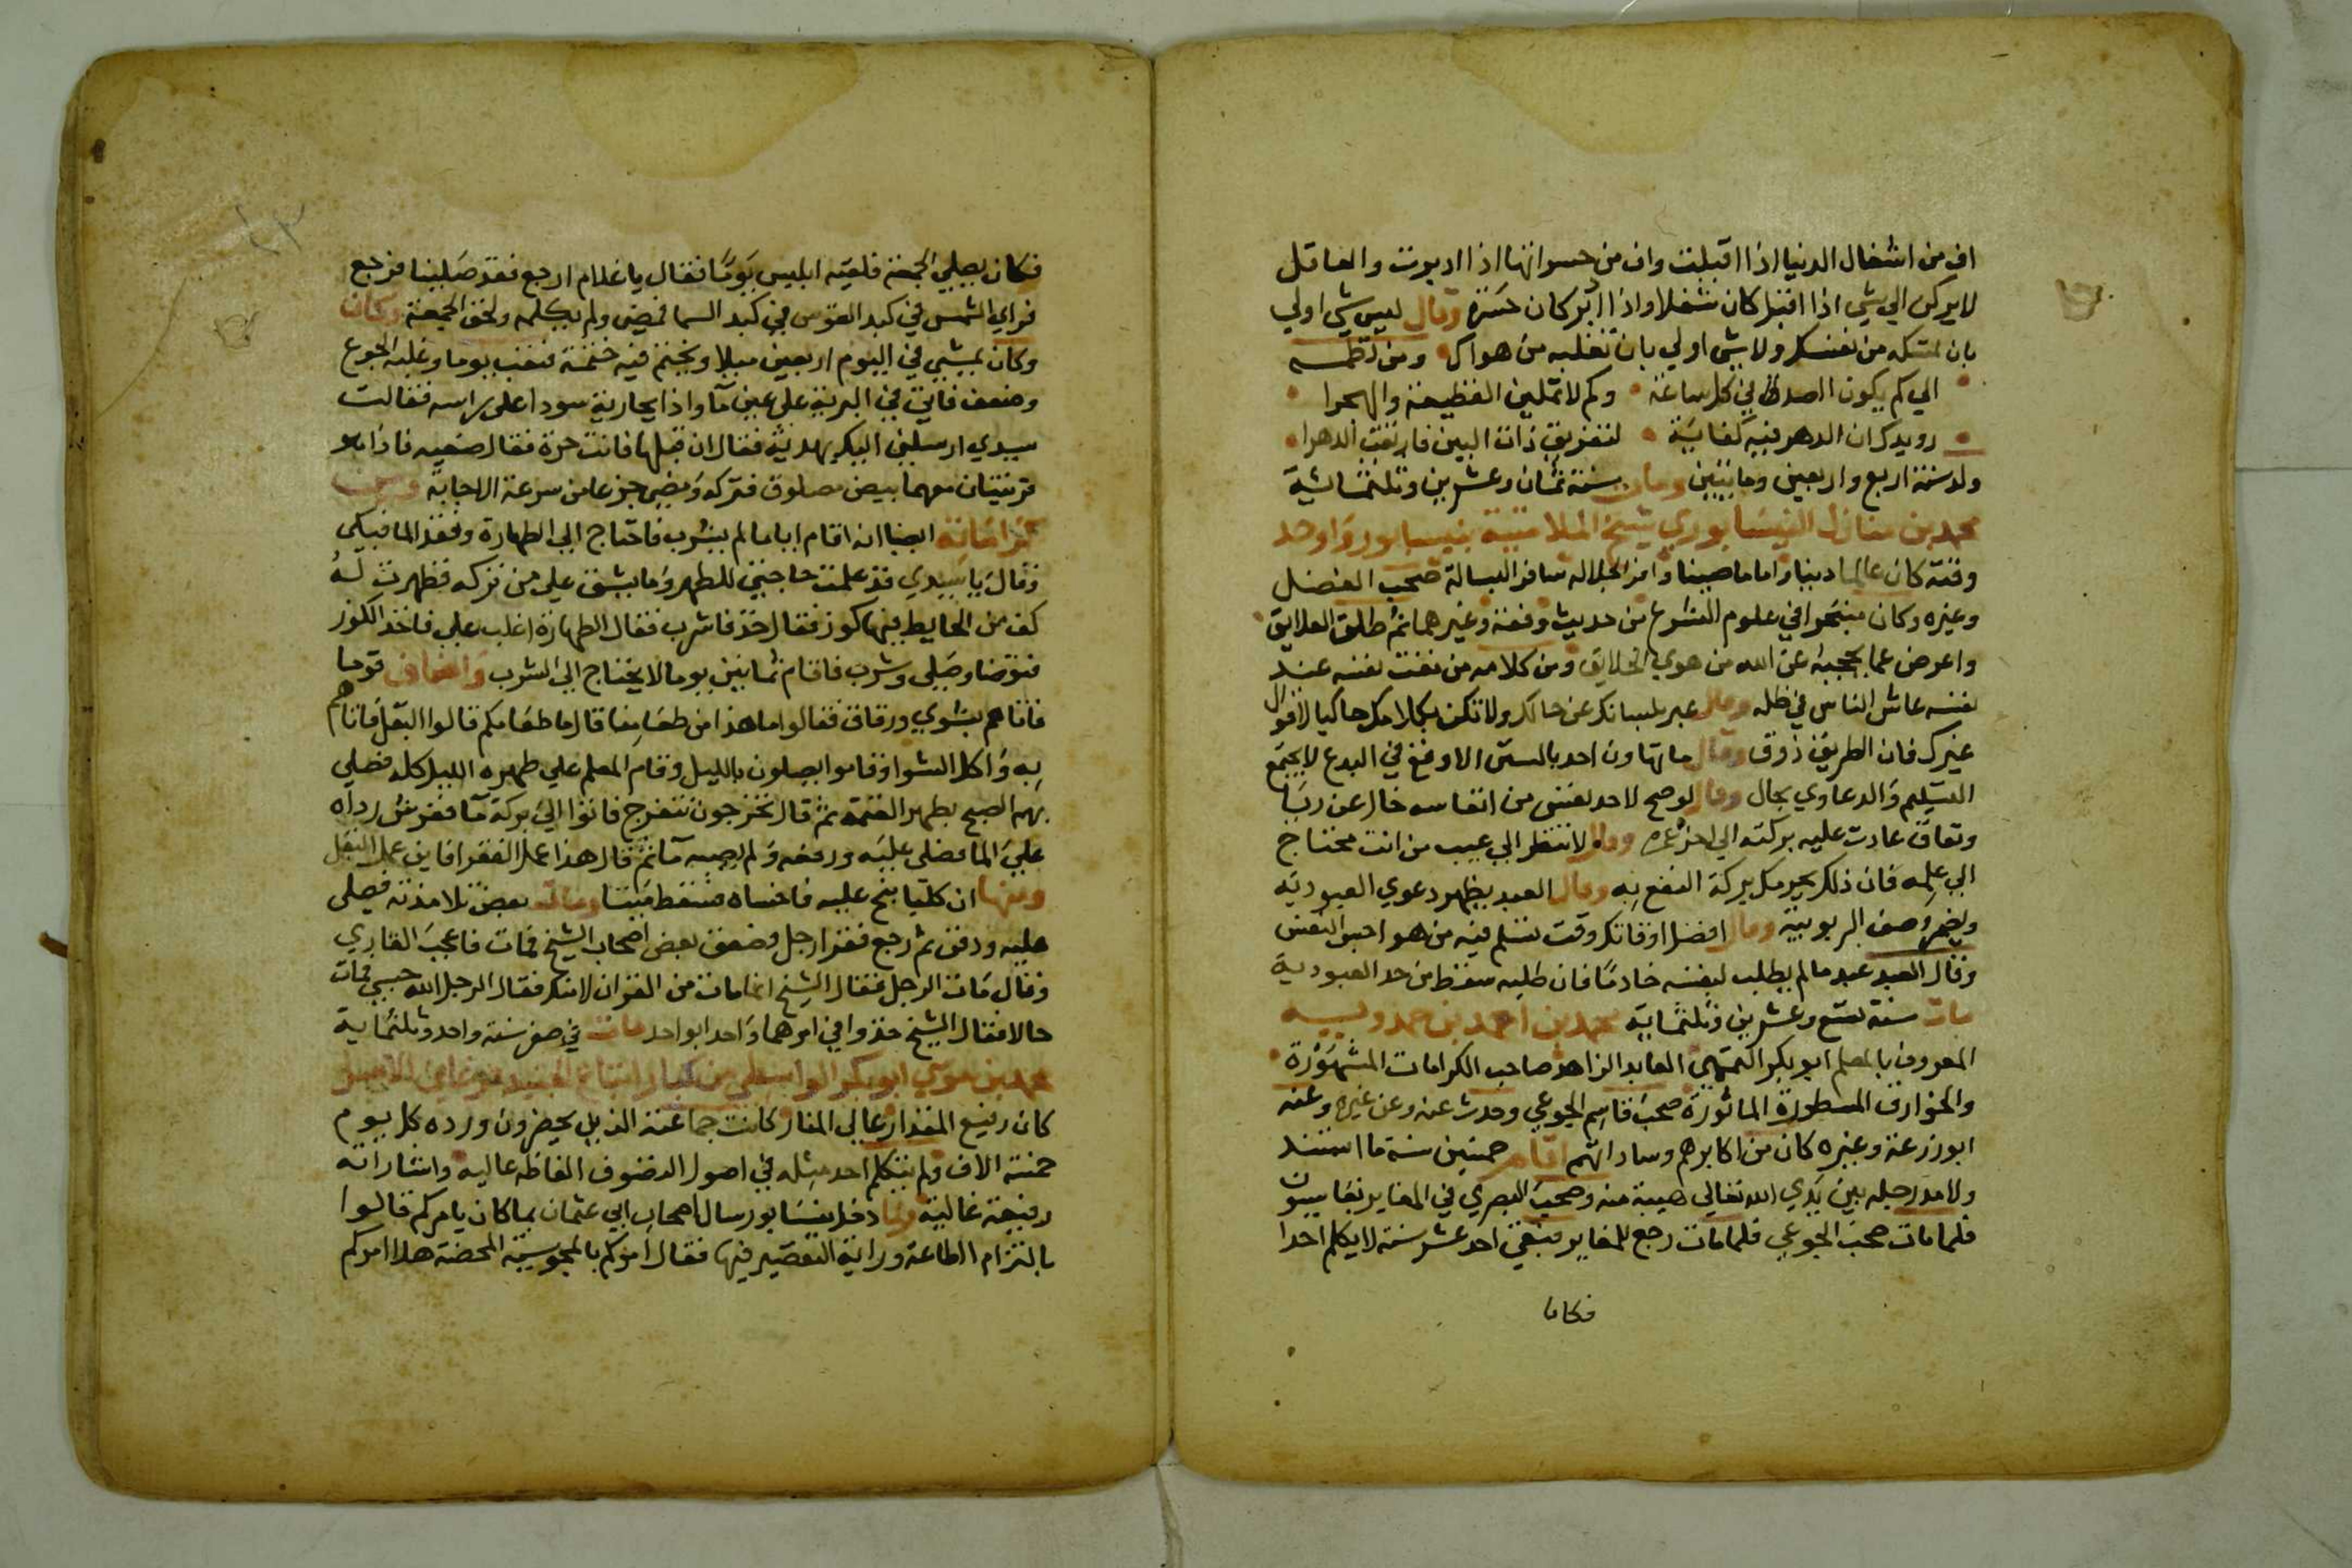 ان من اشغال الدنيا اذا اقبلت وان من حسراتها اذا ادبرت والعاقل
لا يركن الي شي اذا اقبل كان شغلا واذا ادبر كان حسرة وقال ليس شي اولي
بان تمسكه من نفسك ولا شي اولي بان تغلبه من هواك ومن نظمه
الي كم يكون الصد في كل ساعة وكم لا تملين القطيعة والهجرا
رويدك ان الدهر فيه كفاية لتفريق ذات البين فارتقب الدهرا
ولد سنة اربع واربعين ومايتين ومات سنة ثمان وعشرين وثلثماية
محمد بن منازل النيسابوري شيخ الملامتية بنيسابور واوحد
وقته كان عالما دينا واماما صينا وافر الجلاله سافر البسالة صحب الفضل
وغيره وكان متبحرا في علوم الشرع من حديث وفقه وغيرهما ثم طلق العلايق
واعرض عما يحجبه عن الله من هوي الخلايق ومن كلامه من نفت نفسه عند
نفسه عاش الناس في ظله وقال عبر بلسانك عن حالك ولا تكن بكلامك حاكيا لاقوال
غيرك فان الطريق ذوق وقال ما تهاون احد بالسنن الا وقع في البدع لا يجتمع
التسليم والدعاوي بحال وقال لو صح لاحد نفس من انفاسه خال عن ريا
ونفاق عادت عليه بركته الي اخر عمره وقال لا تنظر الي عيب من انت محتاج
الي علمه فان ذلك يحرمك بركة النفع به وقال العبد يظهر دعوي العبودية
ويضمر وصف الربوبية وقال افضل اوقاتك وقت تسلم فيه من هواجس النفس
وقال العبد عبد ما لم يطلب لنفسه خادما فان طلبه سقط من حد العبودية
مات سنة تسع وعشرين وثلثماية محمد بن احمد بن حمدويه
المعروف بالمعلم ابو بكر التميمي العابد الزاهد صاحب الكرامات المشهورة
والخوارق المسطورة الماثورة صحب قاسم الجوعي وحدث عنه وعن غيره وعنه
ابو زرعة وغيره كان من اكابرهم وساداتهم اقام خمسين سنة ما استند
ولا مد رجله بين يدي الله تعالي هيبة منه وصحب البصري في المغاير
فلما مات صحب الجوعي فلما مات رجع للمغاير فبقي احد عشر سنة لا يكلم احدا
فكان
فكان يصلي الجمعة فلقيه ابليس يوما فقال يا غلام ارجع فقد صلينا فرجع
فراي الشمس في كبد القوس في كبد السما فمضي ولم يكلمه ولحق الجمعة وكان
وكان يمشي في اليوم اربعين ميلا ويختم فيه ختمة فتعب يوما وغلبه الجوع
وضعف فاتي في البرية علي عين ما واذا بجارية سودا علي راسه فقالت
سيدي ارسلني اليك بهدية فقال ان قبلها فانت حرة فقال ضعيه فاذا هو
قرنيتان معهما بيض مصلوق فتركه ومضي جزعا من سرعة الاجابة ومن
كراماته ايضا انه اقام اياما لم يشرب فاحتاج الي الطهارة وفقد الما فبكي
وقال يا سيدي قد علمت حاجتي للطهر وما يشق علي من تركه فظهرت له
كف من الحايط فيها كوز فقال خذ فاشرب فقال الطهارة اغلب علي فاخذ الكوز
فتوضا وصلي وشرب فاقام ثمانين يوما لا يحتاج الي الشرب واضاف قوما
فاتاهم بشوي ورقاق فقالوا ما هذا من طعامنا قال ما طعامكم قالوا البقل فاتاهم
به واكل الشوا وقاموا يصلون بالليل وقام المعلم علي ظهره الليل كله فصلي
بهم الصبح بطهر العتمة ثم قال تخرجون نتفرج فاتوا الي بركة ما ففرش رداه
علي الما فصلي عليه ورفعه ولم يصبه ما ثم قال هذا عمل الفقرا فاين عمل البقل
ومنها ان كلبا نبح عليه فاخساه فسقط ميتا ومات بعض تلامذته فصلي
عليه ودفن ثم رجع فقرا رجل فصعق بعض اصحاب الشيخ فمات فاعجب القاري
وقال مات الرجل فقال الشيخ انما مات من القران لا منك فقال الرجل الله حسبي فمات
حالا فقال الشيخ خذوا في امرهما واحد ابواحد مات في صفر سنة واحد وثلثماية
محمد بن موسي ابو بكر الواسطي من كبار اتباع الجنيد فرغاني الاصل
كان رفيع المقدار عالي المنار كانت جماعته الذين يحضرون ورده كل يوم
خمسة الاف ولم يتكلم احد مثله في اصول التصوف الفاظه عاليه واشاراته
رفيعة غالية ولما دخل نيسابور سال اصحاب ابي عثمان بما كان يامركم قالوا
بالتزام الطاعة وراية التقصير فيها فقال امركم بالمجوسية المحضة هلا امركم